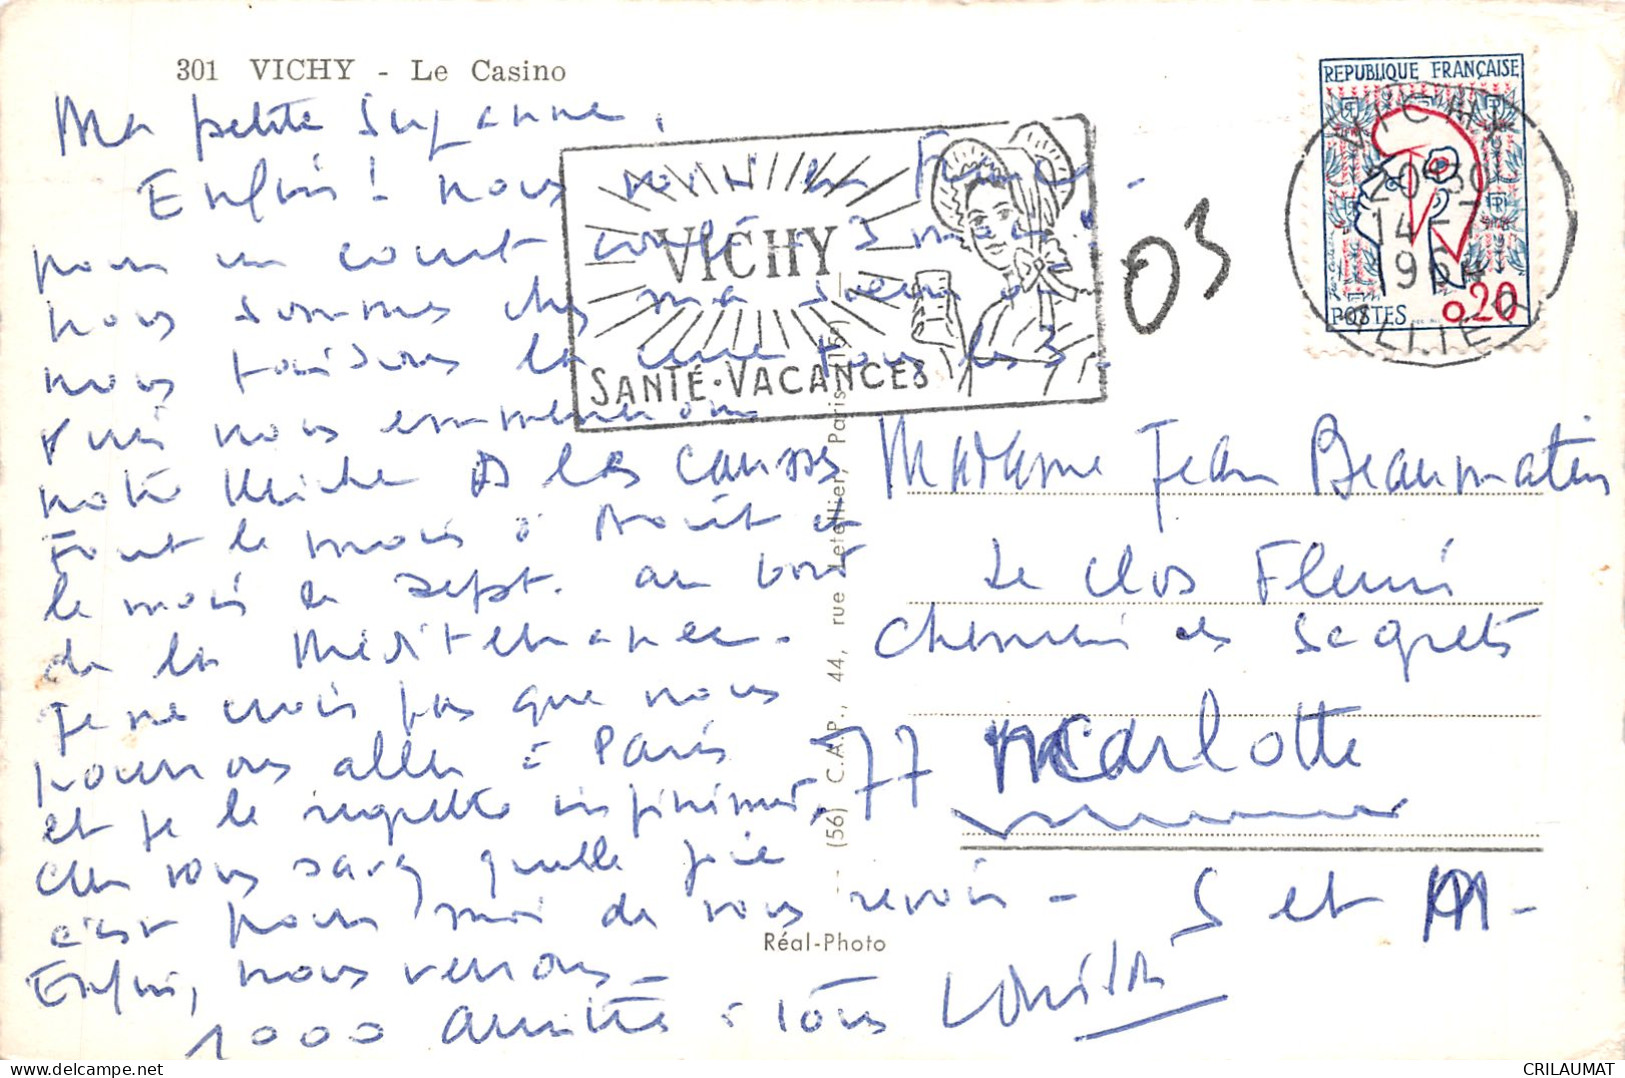 301 VICHY - Le Casino
Ma petite Suzanne,
Enfin! nous voici en France
pour un court congé 3 mois
nous sommes chez ma soeur où
nous faisons la cure tous les 3.
Puis nous emmenerons
notre Michel ds les Causses
tout le mois d'Août et
le mois de sept. au bord
de la Méditerranée.
Je ne crois pas que nous
pourrons aller à Paris
et je le regrette infiniment,
car vous savez quelle joie
c'est pour moi de vous revoir -
Enfin, nous verrons -
1000 amitiés à tous
S et M -
VICHY
SANTÉ·VACANCES
03
REPUBLIQUE FRANÇAISE
POSTES 0,20
VICHY
20H30
14 - 7
196
ALLIER
Madame Jean Beaumatin
Le Clos Fleuri
Chemin des Segrets
77 Marlotte
(56) C.A.P., 44, rue Letellier, Paris (15e)
Réal-Photo
CRILAUMAT